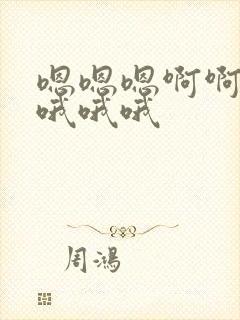 嗯嗯嗯啊啊
哦哦哦
周鸿